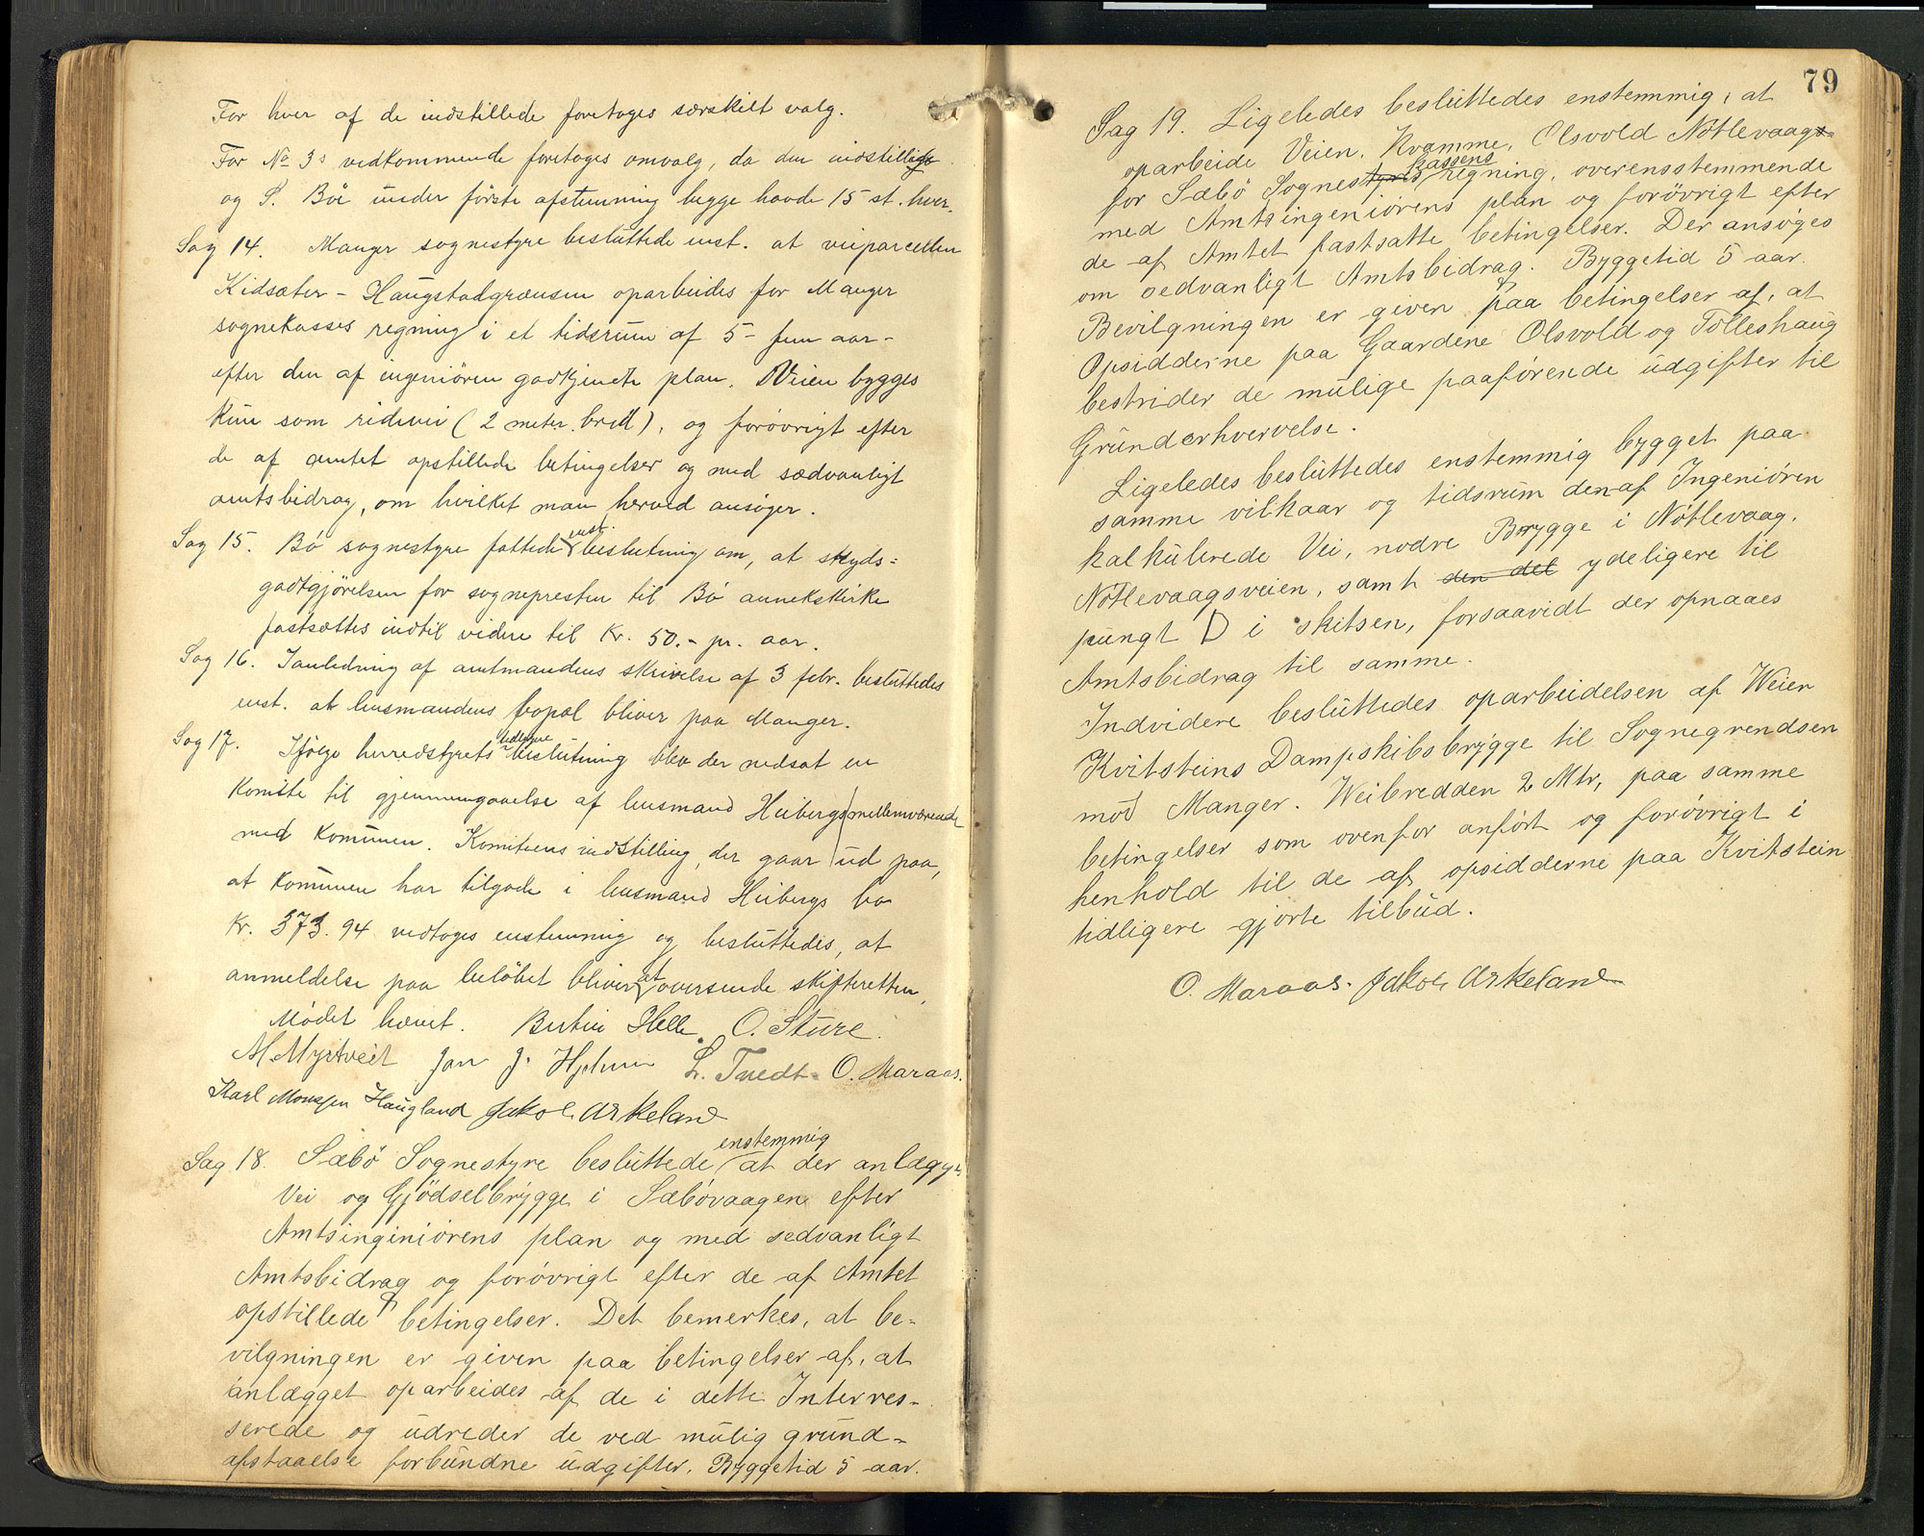 For hver af de indstillede foretages særskilt valg.
For No 3s vedkommende foretages omvalg, da den indstillede
og S. Bøe under første afstemning begge havde 15 st. hver.
Sag 14. Manger sognestyre besluttede enst. at veiparcellen
Kidsæter - Haugstadgrænsen oparbeides for Manger
sognekasses regning i et tidsrum af 5 - fem aar -
efter den af ingeniøren godkjendte plan. Veien bygges
kun som ridevei (2 meter bred), og forøvrigt efter
de af amtet opstillede betingelser og med sædvanligt
amtsbidrag, om hvilket man herved ansøger.
Sag 15. Bø sognestyre fattede enst. beslutning om, at skyds=
godtgjørelsen for sognepresten til Bø annekskirke
fastsættes indtil videre til Kr. 50.- pr. aar.
Sag 16. I anledning af amtmandens skrivelse af 3 febr. besluttedes
enst. at lensmandens bopæl bliver paa Manger.
Sag 17. Ifølge herredstyrets tidligere beslutning blev der nedsat en
Komite til gjennemgaaelse af lensmand Heibergs mellemværende
med kommunen. Komiteens indstilling, der gaar ud paa,
at kommunen har tilgode i lensmand Heibergs bo
Kr. 373.94 vedtoges enstemmig og besluttedes, at
anmeldelse paa beløbet bliver at oversende skifteretten.
Mødet hævet. Bertin Helle. O. Sture.
M. Myrtveit Jan J. Hjelmen L. Tvedt. O. Maraas.
Karl Monssen Haugland Jakob Askeland
Sag 18. Sæbö Sognestyre besluttede enstemmig at der anlægges
Vei og Gjödselbrygge i Sæbövaagen efter
Amtsinginiörens plan og med sedvanligt
Amtsbidrag og forövrigt efter de af Amtet
opstillede betingelser. Det bemerkes, at be-
vilgningen er given paa betingelser af, at
anlægget oparbeides af de i dette Interres-
serede og udreder de ved mulig grund-
afstaaelse forbundne udgifter. Byggetid 5 aar.
79
Sag 19. Ligeledes besluttedes enstemmig, at
oparbeide Veien, Kvamme, Olsvold Nötlevaag
for Sæbö Sognestyres Kassens regning, overensstemmende
med Amtsingeniörens plan og forövrigt efter
de af Amtet fastsatte betingelser. Der ansöges
om sedvanligt Amtsbidrag. Byggetid 5 aar.
Bevilgningen er given paa betingelser af, at
Opsidderne paa Gaardene Olsvold og Tolleshaug
bestrider de mulige paaförende udgifter til
Grunderhvervelse.
Ligeledes besluttedes enstemmig bygget paa
samme vilkaar og tidsrum den af Ingeniören
kalkulerede Vei, nedre Brygge i Nötlevaag,
Nötlevaagsveien, samt den del ydeligere til
pungt D i skitsen, forsaavidt der opnaaes
Amtsbidrag til samme.
Indvidere besluttedes oparbeidelsen af Weien
Kvitsteins Dampskibsbrygge til Sognegrendsen
mod Manger. Weibredden 2 Mtr, paa samme
betingelser som ovenfor anfört og forövrigt i
henhold til de af opsidderne paa Kvitstein
tidligere gjorte tilbud.
O. Maraas. Jakob Askeland